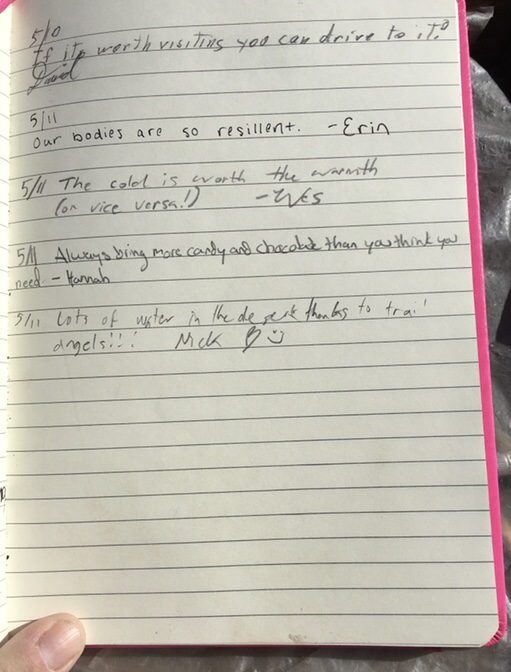 5/10
If its worth visiting you can drive to it!
David
5/11
Our bodies are so resillent. -Erin
5/11 The cold is worth the warmth
(or vice versa!) -Wes
5/11 Always bring more candy and chocolate than you think you
need - Hannah
5/11 Lots of water in the desert thanks to trail
angels!!! Nick ♡ ☺